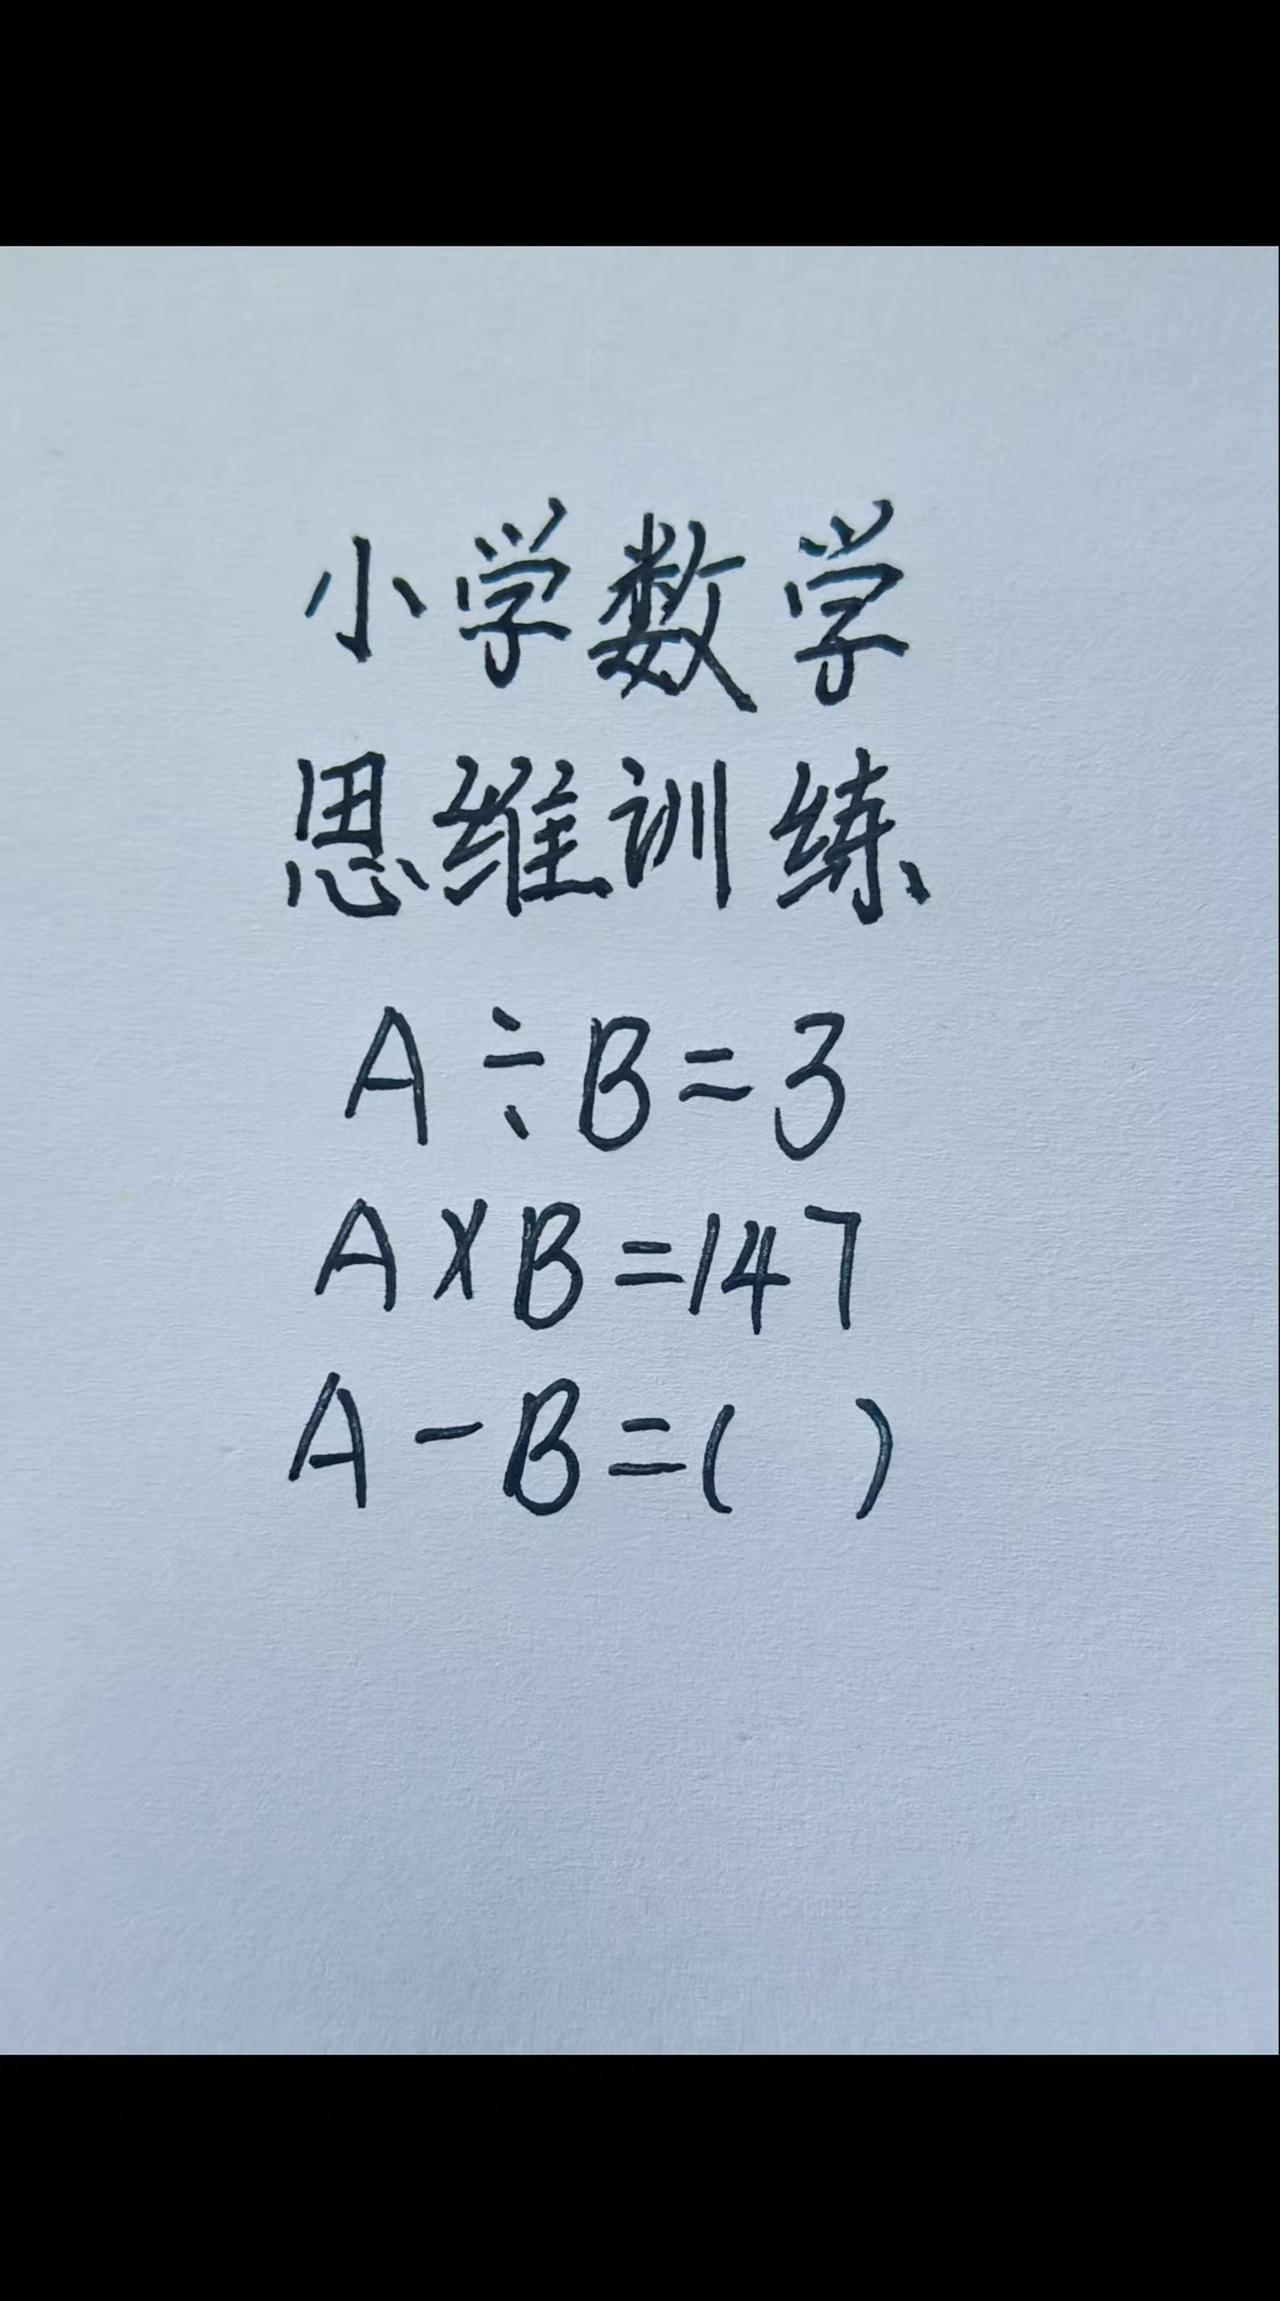 小学数学
思维训练
A÷B=3
A×B=147
A-B=( )